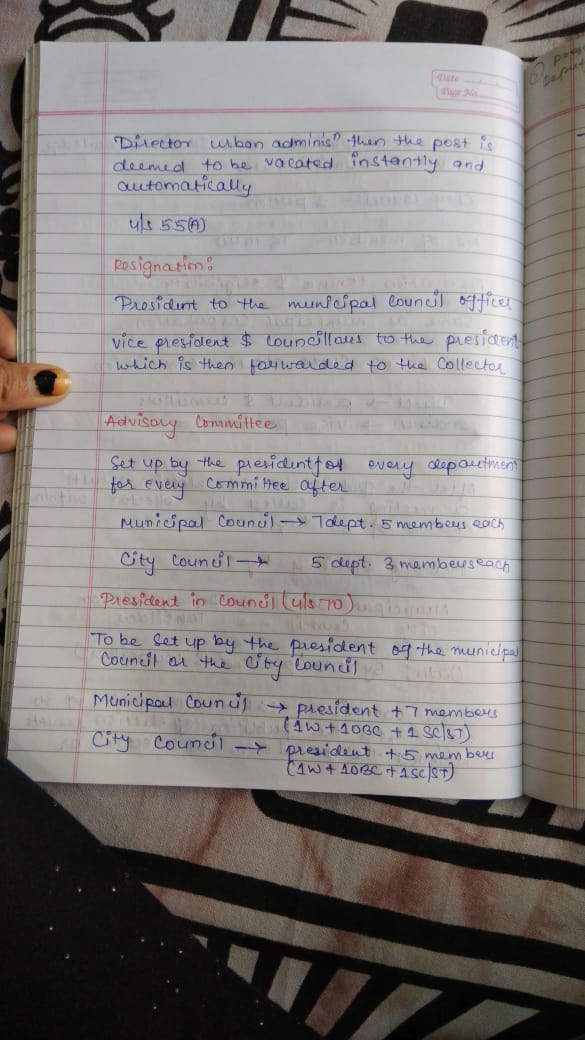 Date
Page No.
Director urban adminisⁿ then the post is
deemed to be vacated instantly and
automatically
u/s 55(A)
Resignation:
President to the municipal council officer
vice president & councillors to the president
which is then forwarded to the Collector
Advisory Committee
Set up by the president for every department
for every committee after
Municipal Council → 7 dept. 5 members each
City Council → 5 dept. 3 members each
President in Council (u/s 70)
To be set up by the president of the municipal
Council or the City Council
Municipal Council → president + 7 members
(1W + 1OBC + 1 SC/ST)
City Council → president + 5 members
(1W + 1OBC + 1SC/ST)